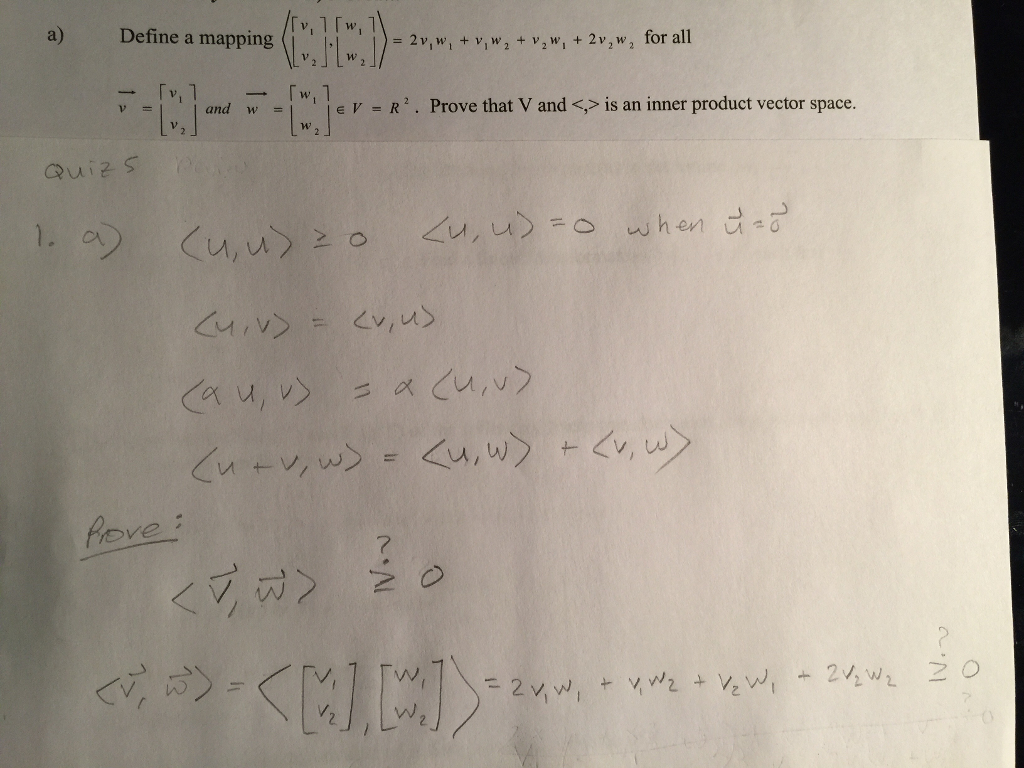 a) Define a mapping ⟨[v₁ v₂], [w₁ w₂]⟩ = 2v₁w₁ + v₁w₂ + v₂w₁ + 2v₂w₂ for all
v⃗ = [v₁ v₂] and w⃗ = [w₁ w₂] ∈ V = R². Prove that V and <,> is an inner product vector space.
Quiz 5
1. a) <u,u> ≥ 0 <u,u> = 0 when u⃗ = 0⃗
<u,v> = <v,u>
<α u, v> = α <u,v>
<u+v, w> = <u,w> + <v,w>
Prove:
<v⃗, w⃗> ≥? 0
<v⃗, w⃗> = <[v₁ v₂], [w₁ w₂]> = 2v₁w₁ + v₁w₂ + v₂w₁ + 2v₂w₂ ≥? 0